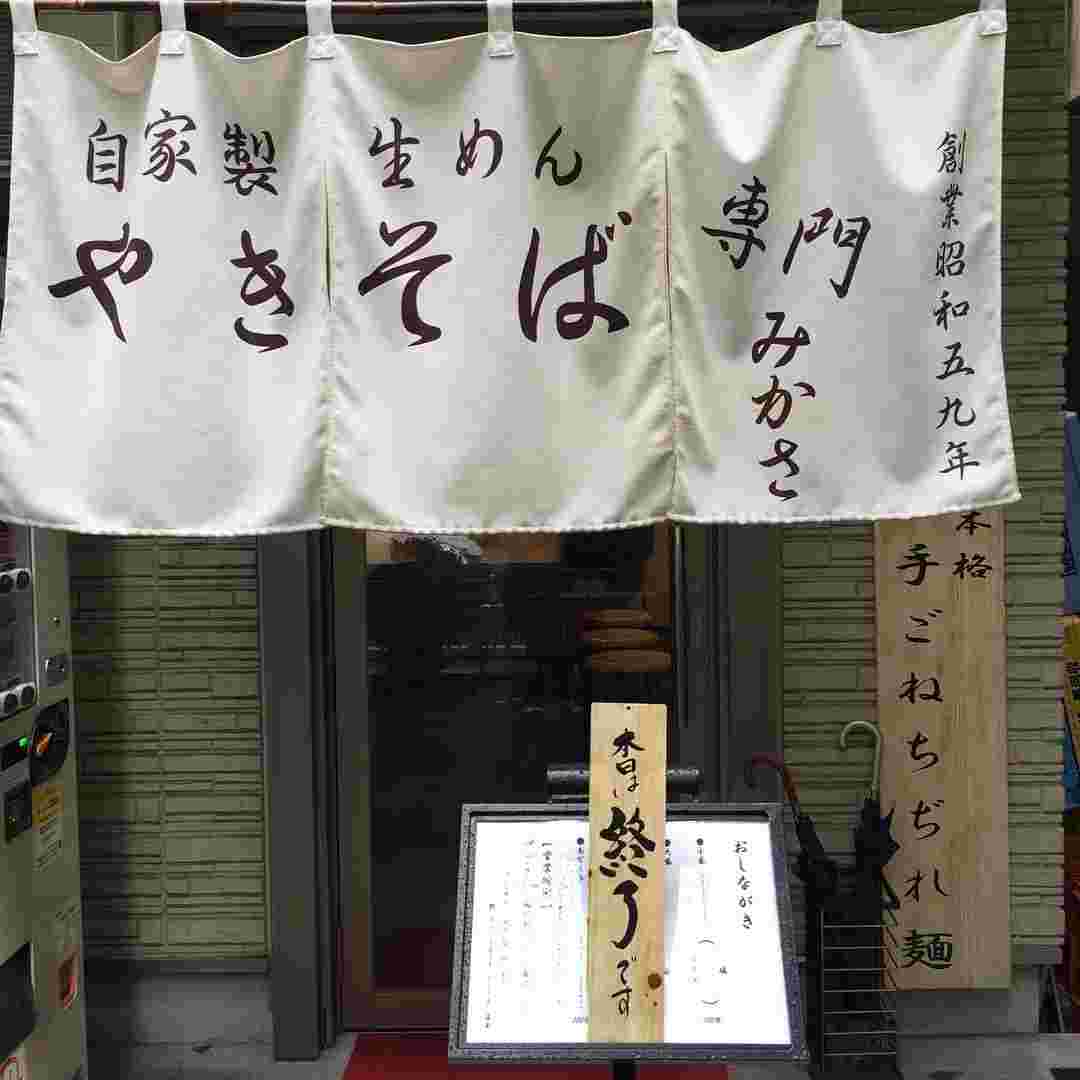 自家製 生めん
やきそば
専門
みかさ
創業昭和五九年
本格
手ごねちぢれ麺
本日は終了です
おしながき